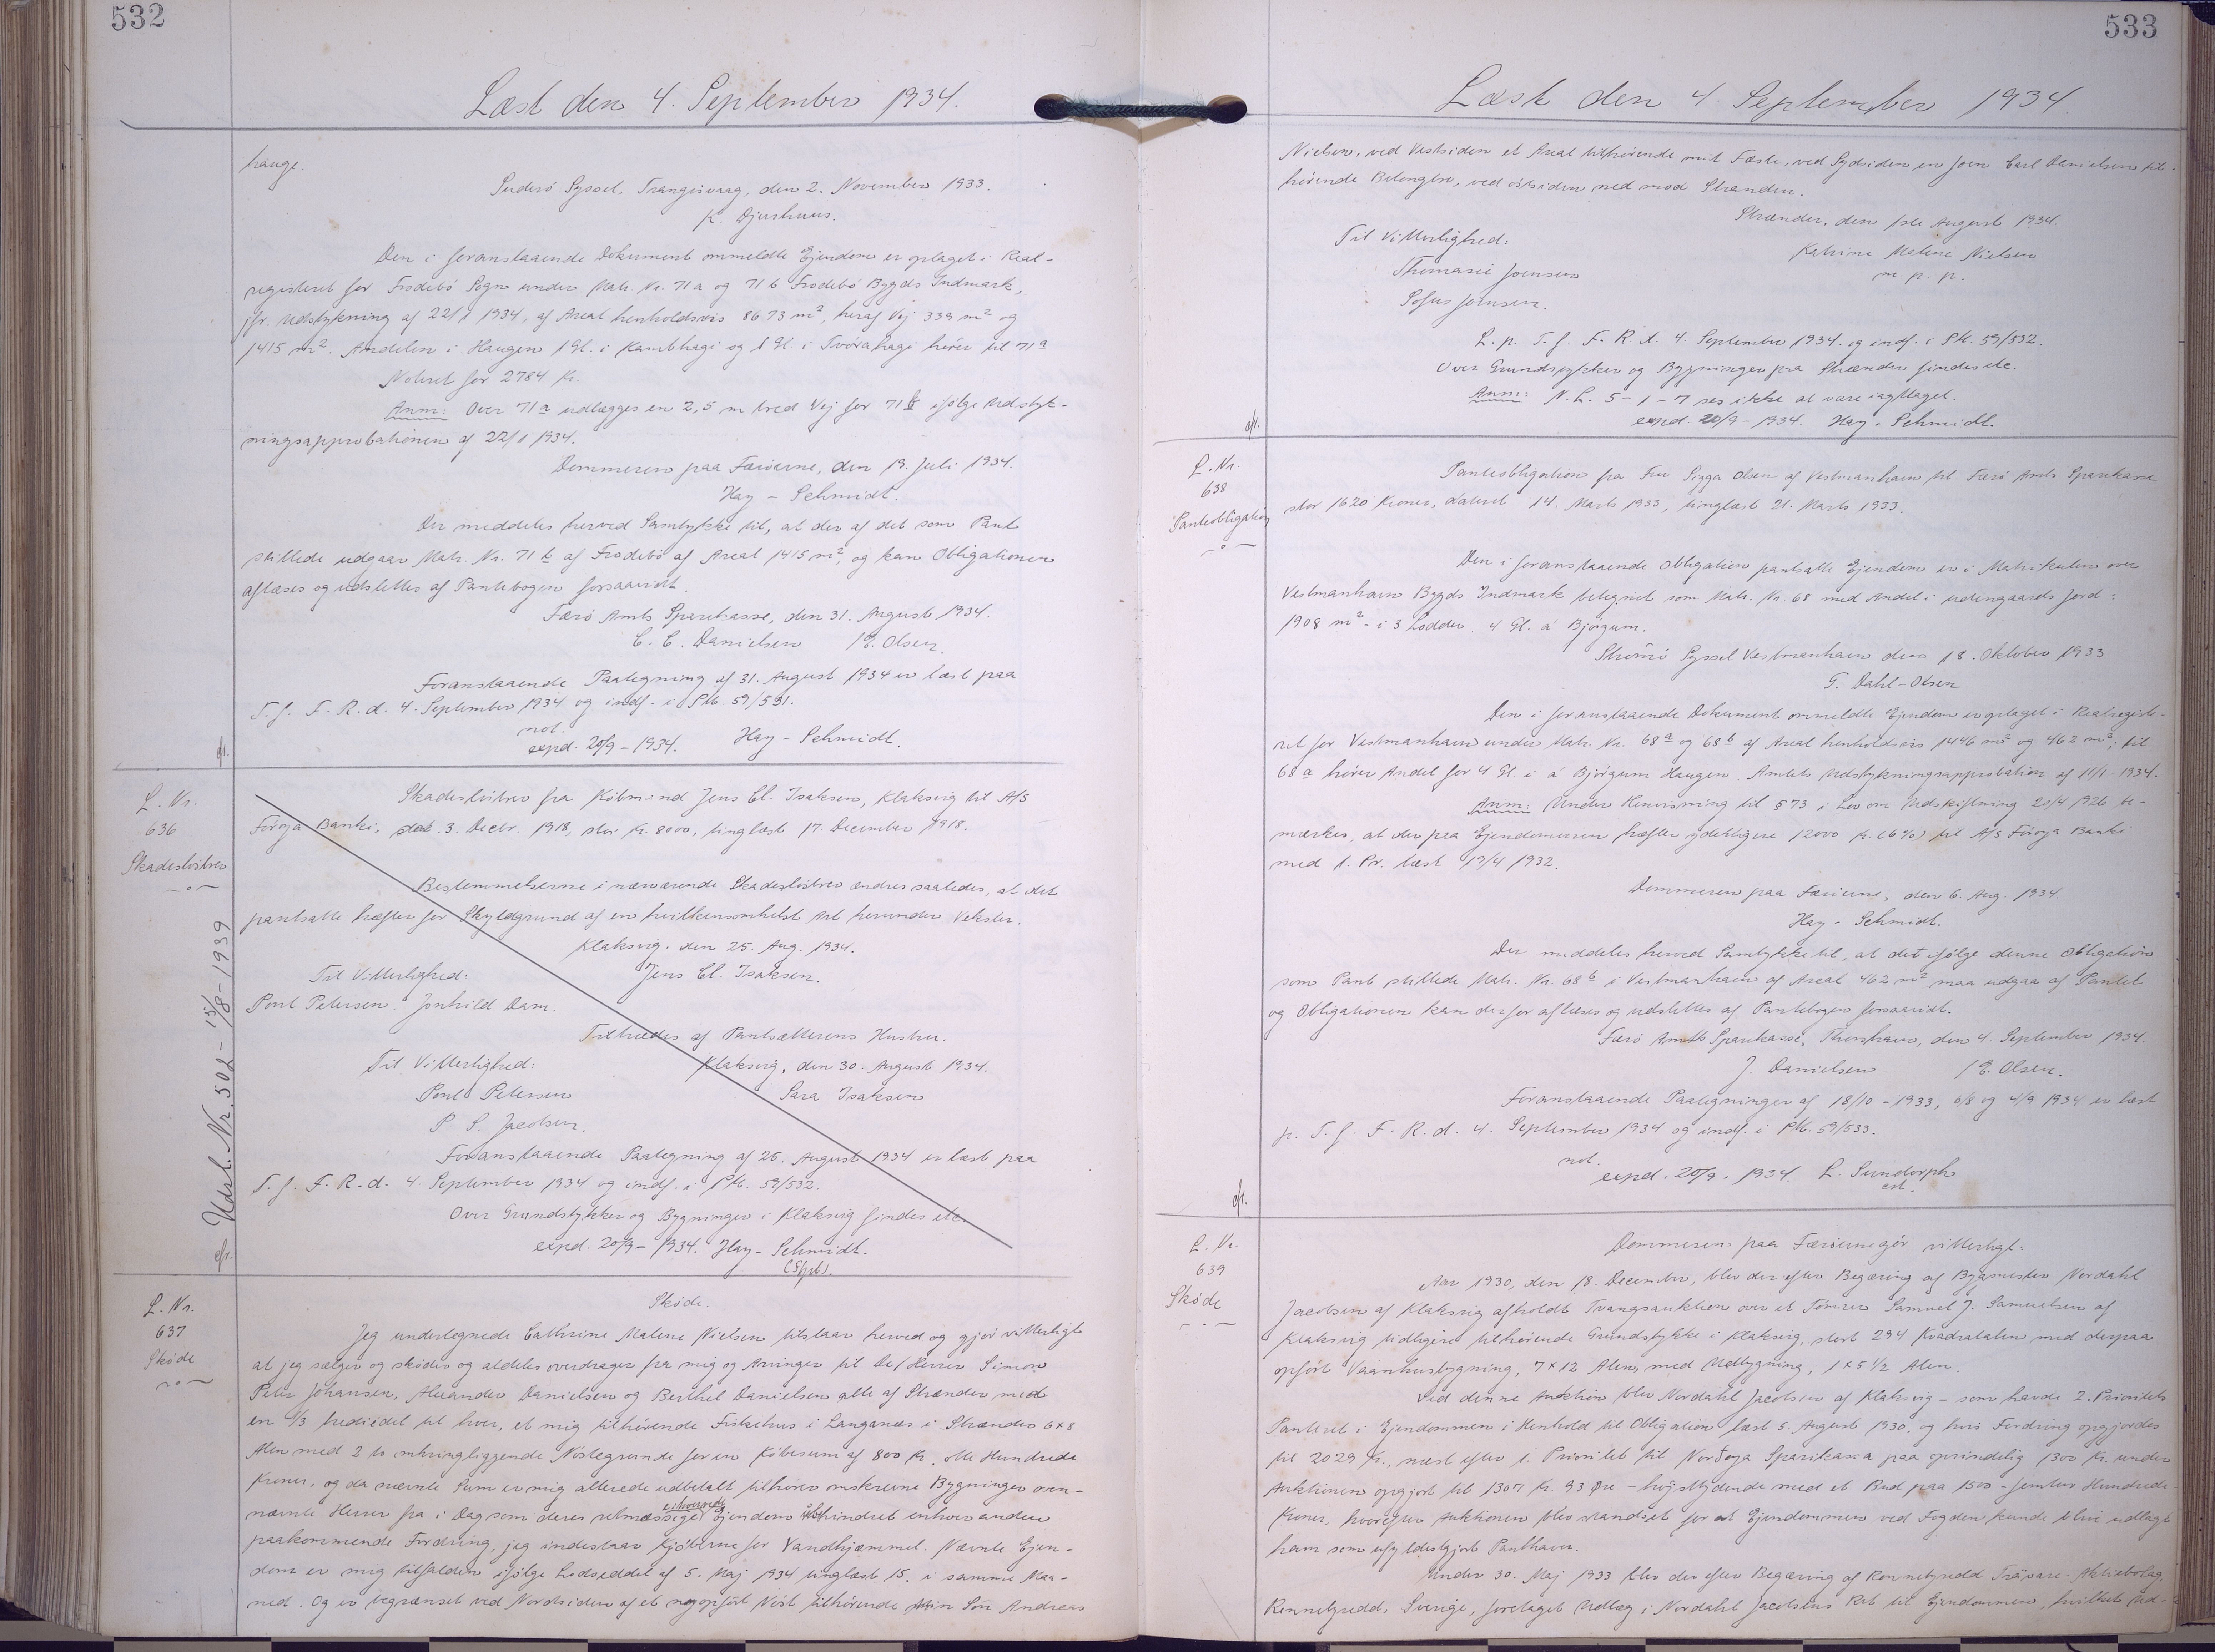 532
Læst den 4. September 1934.
hauge.
Suderö Syssel, Trangisvaag, den 2. November 1933.
K. Djurhuus.
Den i foranstaaende Dokument ommeldte Ejendom er optaget i Real-
registeret for Frodebö Sogn under Matr. Nr. 71 a og 71 b Frodebö Bygds Indmark,
jfr. Udstykning af 22/1 1934, af Areal henholdsvis 8673 m², heraf Vej 339 m² og
1415 m². Andelen i Haugen 1 Gl. i Kambhagi og 1 Gl. i Tvörahagi hörer til 71 a
Noteret for 2784 Kr.
Anm: Over 71 a udlægges en 2,5 m bred Vej for 71 b ifölge Udstyk-
ningsapprobationen af 22/1 1934.
Dommeren paa Færöerne, den 19. Juli 1934.
Hay-Schmidt.
Der meddeles herved Samtykke til, at der af det som Pant
stillede udgaar Matr. Nr. 71 b af Frodebö af Areal 1415 m², og kan Obligationen
aflæses og udslettes af Pantebogen forsaavidt.
Færö Amts Sparekasse, den 31. August 1934.
C. C. Danielsen /E. Olsen.
Foranstaaende Paategning af 31. August 1934 er læst paa
T. f. F. R. d. 4. September 1934 og indf. i Pb. 59/531.
not.
expd. 20/9 - 1934. Hay-Schmidt.
L. Nr.
636
Skadeslösbrev
Udsl. Nr. 502 - 15/8 - 1939
Skadeslösbrev fra Köbmand Jens Cl. Isaksen, Klaksvig til A/S
Föroya Banki, dat. 3. Decbr. 1918, stor Kr. 8000, tinglæst 17. December 1918.
Bestemmelserne i nærværende Skadeslösbrev ændres saaledes, at det
pantsatte hæfter for Skyldgrund af en hvilkensomhelst Art herunder Veksler.
Klaksvig, den 25. Aug. 1934.
Til Vitterlighed: Jens Cl. Isaksen.
Poul Petersen. Jonhild Dam.
Tiltrædes af Pantsætterens Hustru.
Til Vitterlighed: Klaksvig, den 30. August 1934.
Poul Petersen Sara Isaksen
P. S. Jacobsen.
Foranstaaende Paategning af 25. August 1934 er læst paa
T. f. F. R. d. 4. September 1934 og indf. i Pb. 59/532.
Over Grundstykker og Bygninger i Klaksvig findes etc.
expd. 20/9 - 1934. Hay-Schmidt.
L. Nr.
637
Sköde
Sköde.
Jeg undertegnede Cathrine Malene Nielsen tilstaar herved og gjör vitterligt
at jeg sælger og sköder og aldeles overdrager fra mig og Arvinger til De/Herrer Simon
Peter Johansen, Alexander Danielsen og Berthel Danielsen alle af Strænder med
en 1/3 trediedel til hver, et mig tilhörende Fiskehus i Langanæs i Strænder 6x8
Alen med 2 to omkringliggende Nöstegrunde for en Köbesum af 800 Kr. otte Hundrede
Kroner, og da nævnte Sum er mig allerede udbetalt tilhörer omskrevne Bygninger oven-
nævnte Herrer fra i Dag som deres retmæssige Ejendom uhindret enhver anden
paakommende Fordring, jeg indestaar Kjöberne for Vandhjæmmel. Nævnte Ejen-
dom er mig tilfalden ifölge Lodseddel af 5. Maj 1934 tinglæst 15. i samme Maa-
ned. Og er begrænset ved Nordsiden af et nyopfört Nöst tilhörende Min Sön Andreas
533
Læst den 4. September 1934.
Nielsen, ved Vestsiden et Areal tilhörende mit Fæste, ved Sydsiden en Joen Carl Danielsen til-
hörende Belongbro, ved östsiden ned mod Stranden.
Strænder, den 1ste August 1934.
Til Vitterlighed: Katrine Malene Nielsen
Thomasie Joensen m. p. p.
Sofus Joensen.
L. p. T. f. F. R. d. 4. September 1934 og indf. i Pb. 59/532.
Over Grundstykker og Bygninger paa Strænder findes etc.
Anm: N. L. 5-1-7 ses ikke at være iagttaget.
expd. 20/9 - 1934. Hay-Schmidt.
L. Nr.
638
Panteobligation
Panteobligation fra Fru Sigga Olsen af Vestmanhavn til Færö Amts Sparekasse
stor 1620 Kroner, dateret 14. Marts 1933, tinglæst 21. Marts 1933.
Den i foranstaaende Obligation pantsatte Ejendom er i Matrikulen over
Vestmanhavn Bygds Indmark betegnet som Matr. Nr. 68 med Andel i udengaards Jord:
1908 m² i 3 Lodder. 4 Gl. á Björgum.
Strömö Syssel Vestmanhavn den 18. Oktober 1933
T. Dahl-Olsen
Den i foranstaaende Dokument ommeldte Ejendom er optaget i Realregiste-
ret for Vestmanhavn under Matr. Nr. 68 a og 68 b af Areal henholdsvis 1446 m² og 462 m²; til
68 a hörer Andel for 4 Gl. i á Björgum Haugen. Amtets Udstykningsapprobation af 11/1-1934.
Anm: Under Henvisning til § 73 i Lov om Udskiftning 20/4 1926 be-
mærkes, at der paa Ejendommen hæfter yderligere 12000 Kr. (6%) til A/S Föroya Banki
med 1. Pr. læst 19/4 1932.
Dommeren paa Færöerne, den 6. Aug. 1934.
Hay-Schmidt.
Der meddeles herved Samtykke til, at det ifölge denne Obligation
som Pant stillede Matr. Nr. 68 b i Vestmanhavn af Areal 462 m² maa udgaa af Pantet
og Obligationen kan derfor aflæses og udslettes af Pantebogen forsaavidt.
Færö Amts Sparekasse, Thorshavn, den 4. September 1934.
J. Danielsen /E. Olsen.
Foranstaaende Paategninger af 18/10 - 1933, 6/8 og 4/9 1934 er læst
p. T. f. F. R. d. 4. September 1934 og indf. i Pb. 59/533.
not.
expd. 20/9 - 1934. L. Sundorph
cst.
L. Nr.
639
Sköde
Dommeren paa Færöerne gör vitterligt:
Aar 1930, den 18. December, blev der efter Begæring af Bygmester Nordahl
Jacobsen af Klaksvig afholdt Tvangsauktion over et Tömrer Samuel J. Samuelsen af
Klaksvig tidligere tilhörende Grundstykke i Klaksvig, stort 294 Kvadratalen med derpaa
opfört Vaanhusbygning, 7 x 12 Alen, med Udbygning, 1 x 5 1/2 Alen.
Ved denne Auktion blev Nordahl Jacobsen af Klaksvig - som havde 2. Prioritets
Panteret i Ejendommen i Henhold til Obligation læst 5. August 1930, og hvis Fordring opgjordes
til 2029 Kr., næst efter 1. Prioritet til Norðoya Sparikassa paa oprindelig 1300 Kr. under
Auktionen opgjort til 1307 Kr. 93 Öre - höjstbydende med et Bud paa 1500 - femten Hundrede
Kroner, hvorefter Auktionen blev standset for at Ejendommen ved Fogden kunde blive udlagt
ham som ufyldestgjort Panthaver.
Under 30. Maj 1933 blev der efter Begæring af Rennebyredd Trävaru Aktiebolag,
Rennebyredd, Sverige, foretaget Udlæg i Nordahl Jacobsens Ret til Ejendommen, hvilket Ud-